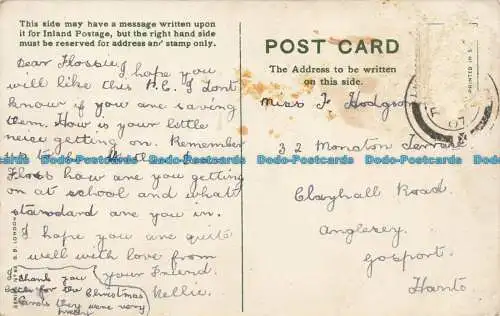 This side may have a message written upon
it for Inland Postage, but the right hand side
must be reserved for address and stamp only.
Dear Flossie
I hope you
will like this P.C. I dont
know if you are saving
them. How is your little
neice getting on. Remember
us to
Floss how are you getting
on at school and what
standard are you in.
I hope you are quite
well with love from
your friend
Nellie.
thank you
each for the Christmas
Cards they were very
pretty
POST CARD
The Address to be written
on this side.
Miss F Hodgson
32 Monaton Terrace
Clayhall Road.
Anglesey.
Gosport.
Hants
PRINTED IN
07
LONDON
Dodo-Postcards Dodo-Postcards Dodo-Postcards Dodo-Postcards